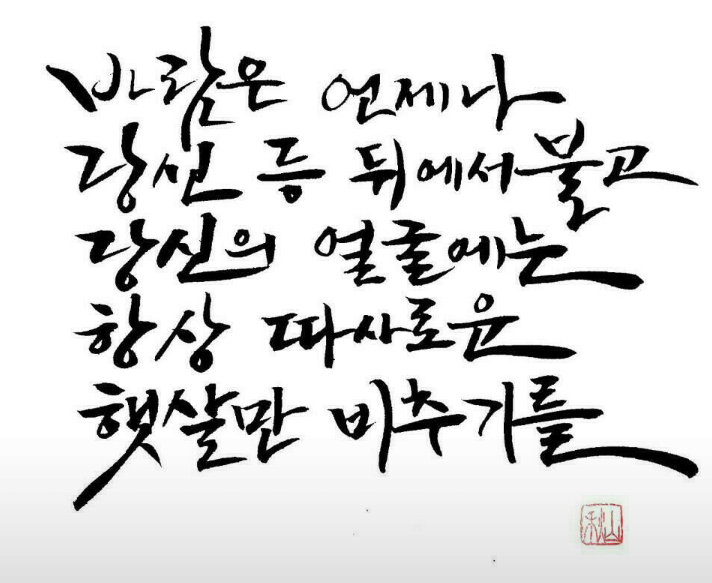 바람은 언제나
당신 등 뒤에서 불고
당신의 얼굴에는
항상 따사로운
햇살만 비추기를